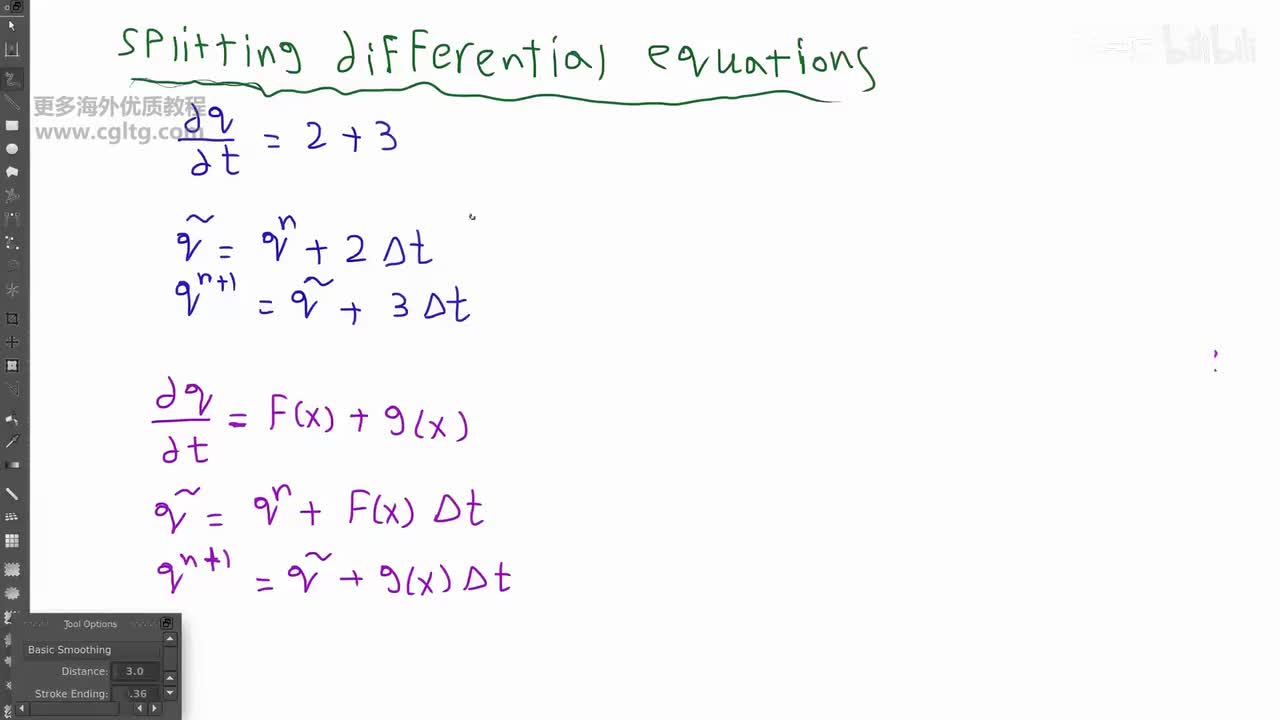 splitting differential equations
bilibili
更多海外优质教程
www.cgltg.com
∂q/∂t = 2 + 3
q̃ = qⁿ + 2 Δt
qⁿ⁺¹ = q̃ + 3 Δt
∂q/∂t = F(x) + g(x)
q̃ = qⁿ + F(x) Δt
qⁿ⁺¹ = q̃ + g(x) Δt
Tool Options
Basic Smoothing
Distance: 3.0
Stroke Ending: .36